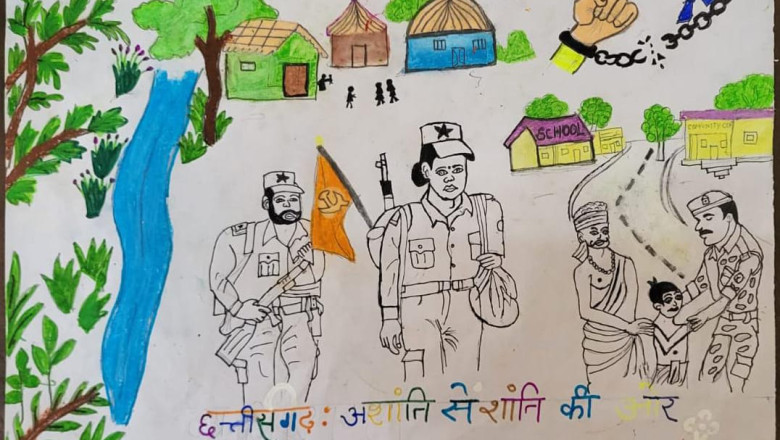 SCHOOL
छत्तीसगढ़: अशांति से शांति की ओर